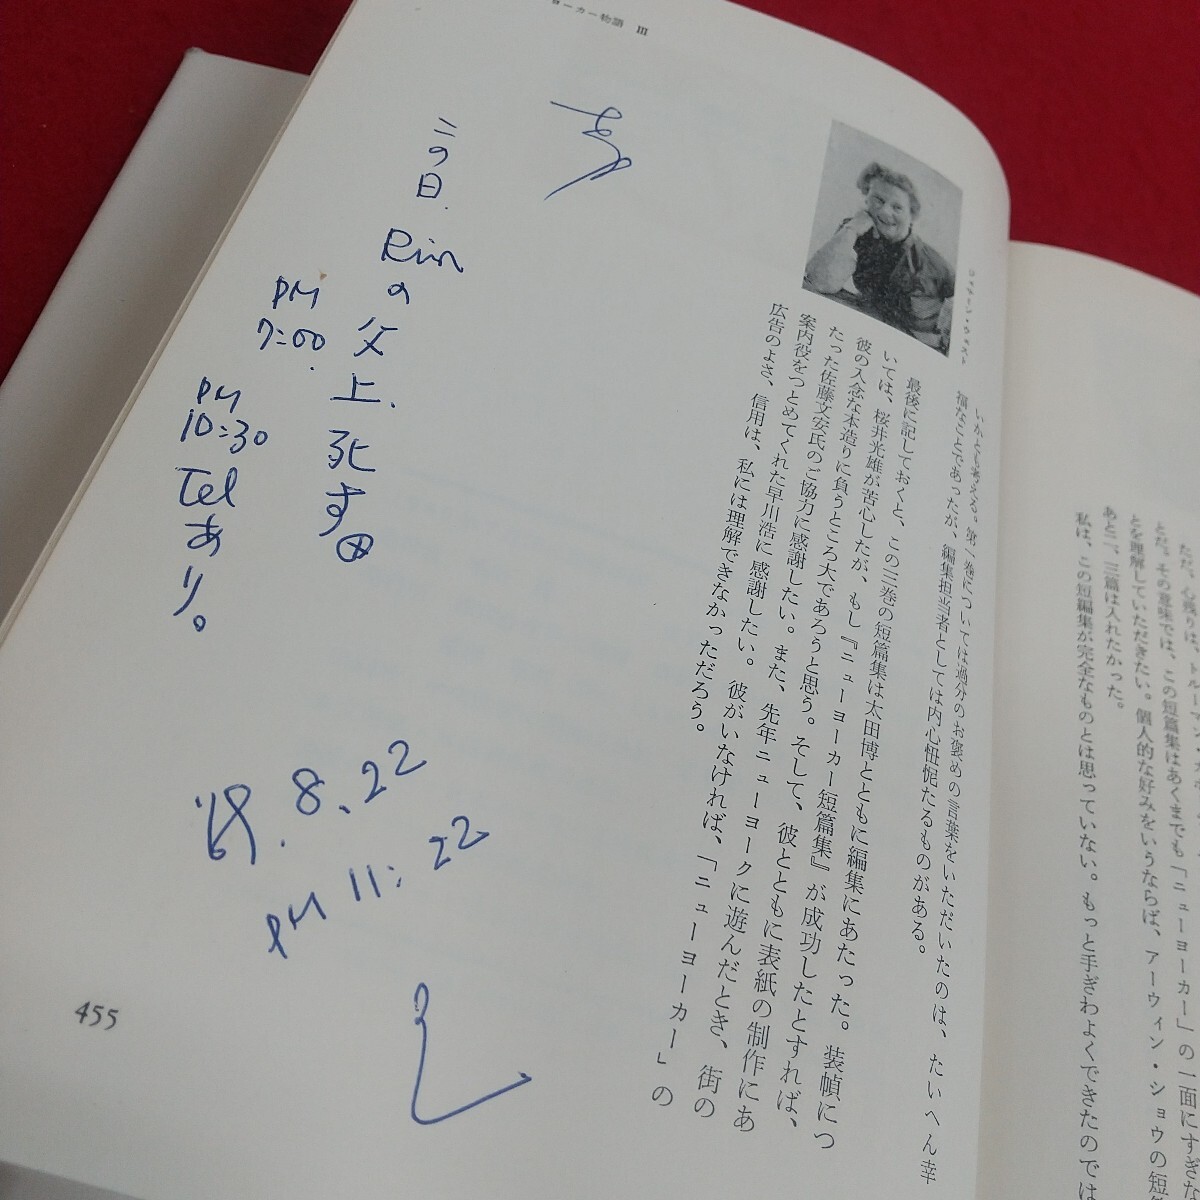 ただ、心残りは、トルーマン・カポ
とだ。その意味では、この短篇集はあくまでも「ニューヨーカー」の一面にすぎな
とを理解していただきたい。個人的な好みをいうならば、アーウィン・ショウの短
あと二、三篇は入れたかった。
私は、この短編集が完全なものとは思っていない。もっと手ぎわよくできたのでは
ヨーカー物語 III
ジェサミン・ウェスト
いかとも考える。第一巻については過分のお褒めの言葉をいただいたのは、たいへん幸
福なことであったが、編集担当者としては内心忸怩たるものがある。
最後に記しておくと、この三巻の短篇集は太田博とともに編集にあたった。装幀につ
いては、桜井光雄が苦心したが、もし『ニューヨーカー短篇集』が成功したとすれば、
彼の入念な本造りに負うところ大であろうと思う。そして、彼とともに表紙の制作にあ
たった佐藤文安氏のご協力に感謝したい。また、先年ニューヨークに遊んだとき、街の
案内役をつとめてくれた早川浩に感謝したい。彼がいなければ、「ニューヨーカー」の
広告のよさ、信用は、私には理解できなかっただろう。
この日、Rinの父上、死す
PM 7:00
PM 10:30 Telあり。
'69.8.22
PM 11:22
455